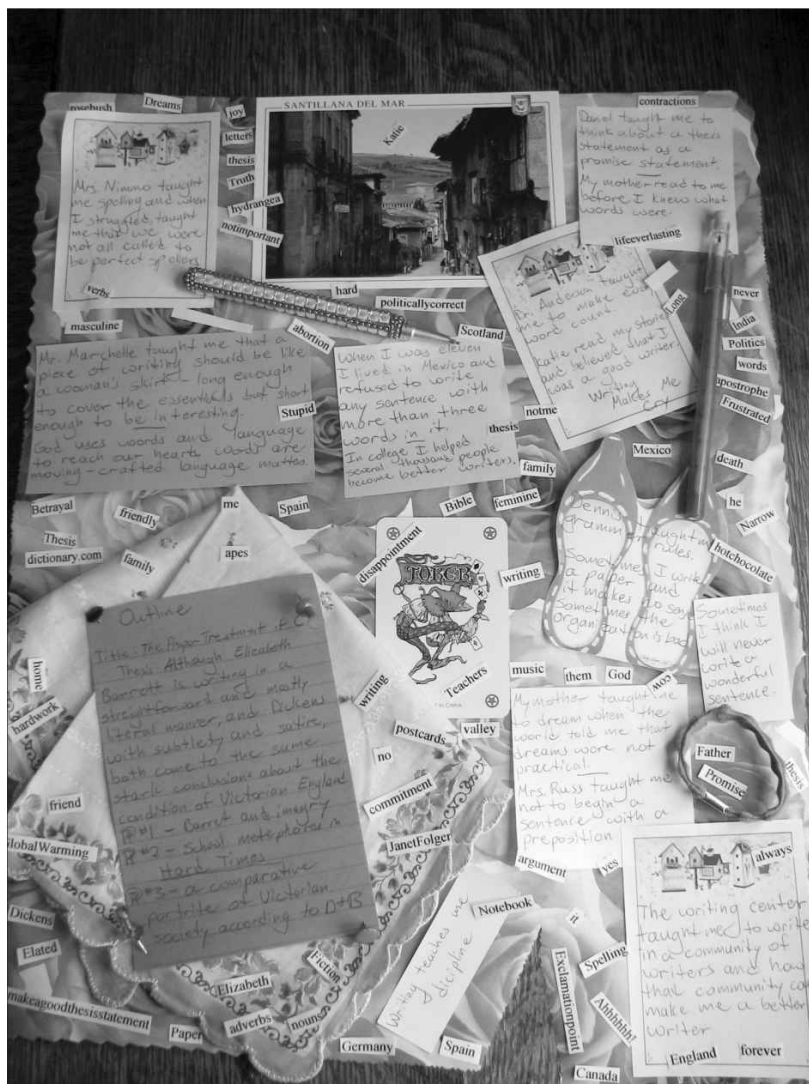 rosebush
Dreams
joy
letters
thesis
Truth
hydrangea
notimportant
SANTILLANA DEL MAR
Katie
contractions
Mrs. Nimmo taught
me spelling and when
I struggled, taught
me that we were
not all called to
be perfect
verbs
taught me to
think about a thesis
statement as a
promise statement
My mother read to me
before I knew what
words were.
lifeeverlasting
hard
politicallycorrect
Scotland
masculine
abortion
Dr. taught
me to make every
word count
Katie read my stories
and believed that I
was a good writer.
Writing
Makes Me
Cry
Long
never
India
Politics
words
apostrophe
Frustrated
death
he
Narrow
hotchocolate
Mr. taught me that a
piece of writing should be like
a woman's skirt - long enough
to cover the essentials but short
enough to be interesting.
God uses words and language
to reach our hearts words are
moving - crafted language matters.
Stupid
When I was eleven
I lived in Mexico and
refused to write
any sentence with
more than three
words in it.
In college I helped
several thousand people
become better writers.
thesis
notme
family
feminine
Bible
Mexico
Betrayal
friendly
me
Spain
Thesis
dictionary.com
family
apes
disappointment
JOKER
writing
Teachers
taught me
grammar rules.
Sometimes I work
a paper and
it makes no sense
Sometimes the
organization is bad
Sometimes
I think I
will never
write a
wonderful
sentence.
Outline
Title: The Paper Treatment of
Thesis: Although Elizabeth
Barrett is writing in a
straightforward and mostly
literal manner, and Dickens
with subtlety and satire,
both come to the same
stark conclusions about the
condition of Victorian England
#1 - Barret and imagry
#2 - School metaphores in
Hard Times
#3 - a comparative
portrite of Victorian
society according to D+B
home
hardwork
friend
GlobalWarming
Dickens
Elated
makeagoodthesisstatement
Paper
writing
postcards
valley
no
commitment
JanetFolger
music
them
God
cow
My mother taught me
to dream when the
world told me that
dreams were not
practical.
Mrs. Russ taught me
not to begin a
sentence with a
preposition
Father
Promise
thesis
argument
yes
always
Notebook
it
Spelling
Exclamationpoint
Ahhhhhh!
Writing teaches me
discipline
The writing center
taught me to write
in a community of
writers and how
that community can
make me a better
writer
Elizabeth
Fiction
adverbs
nouns
Germany
Spain
Canada
England
forever